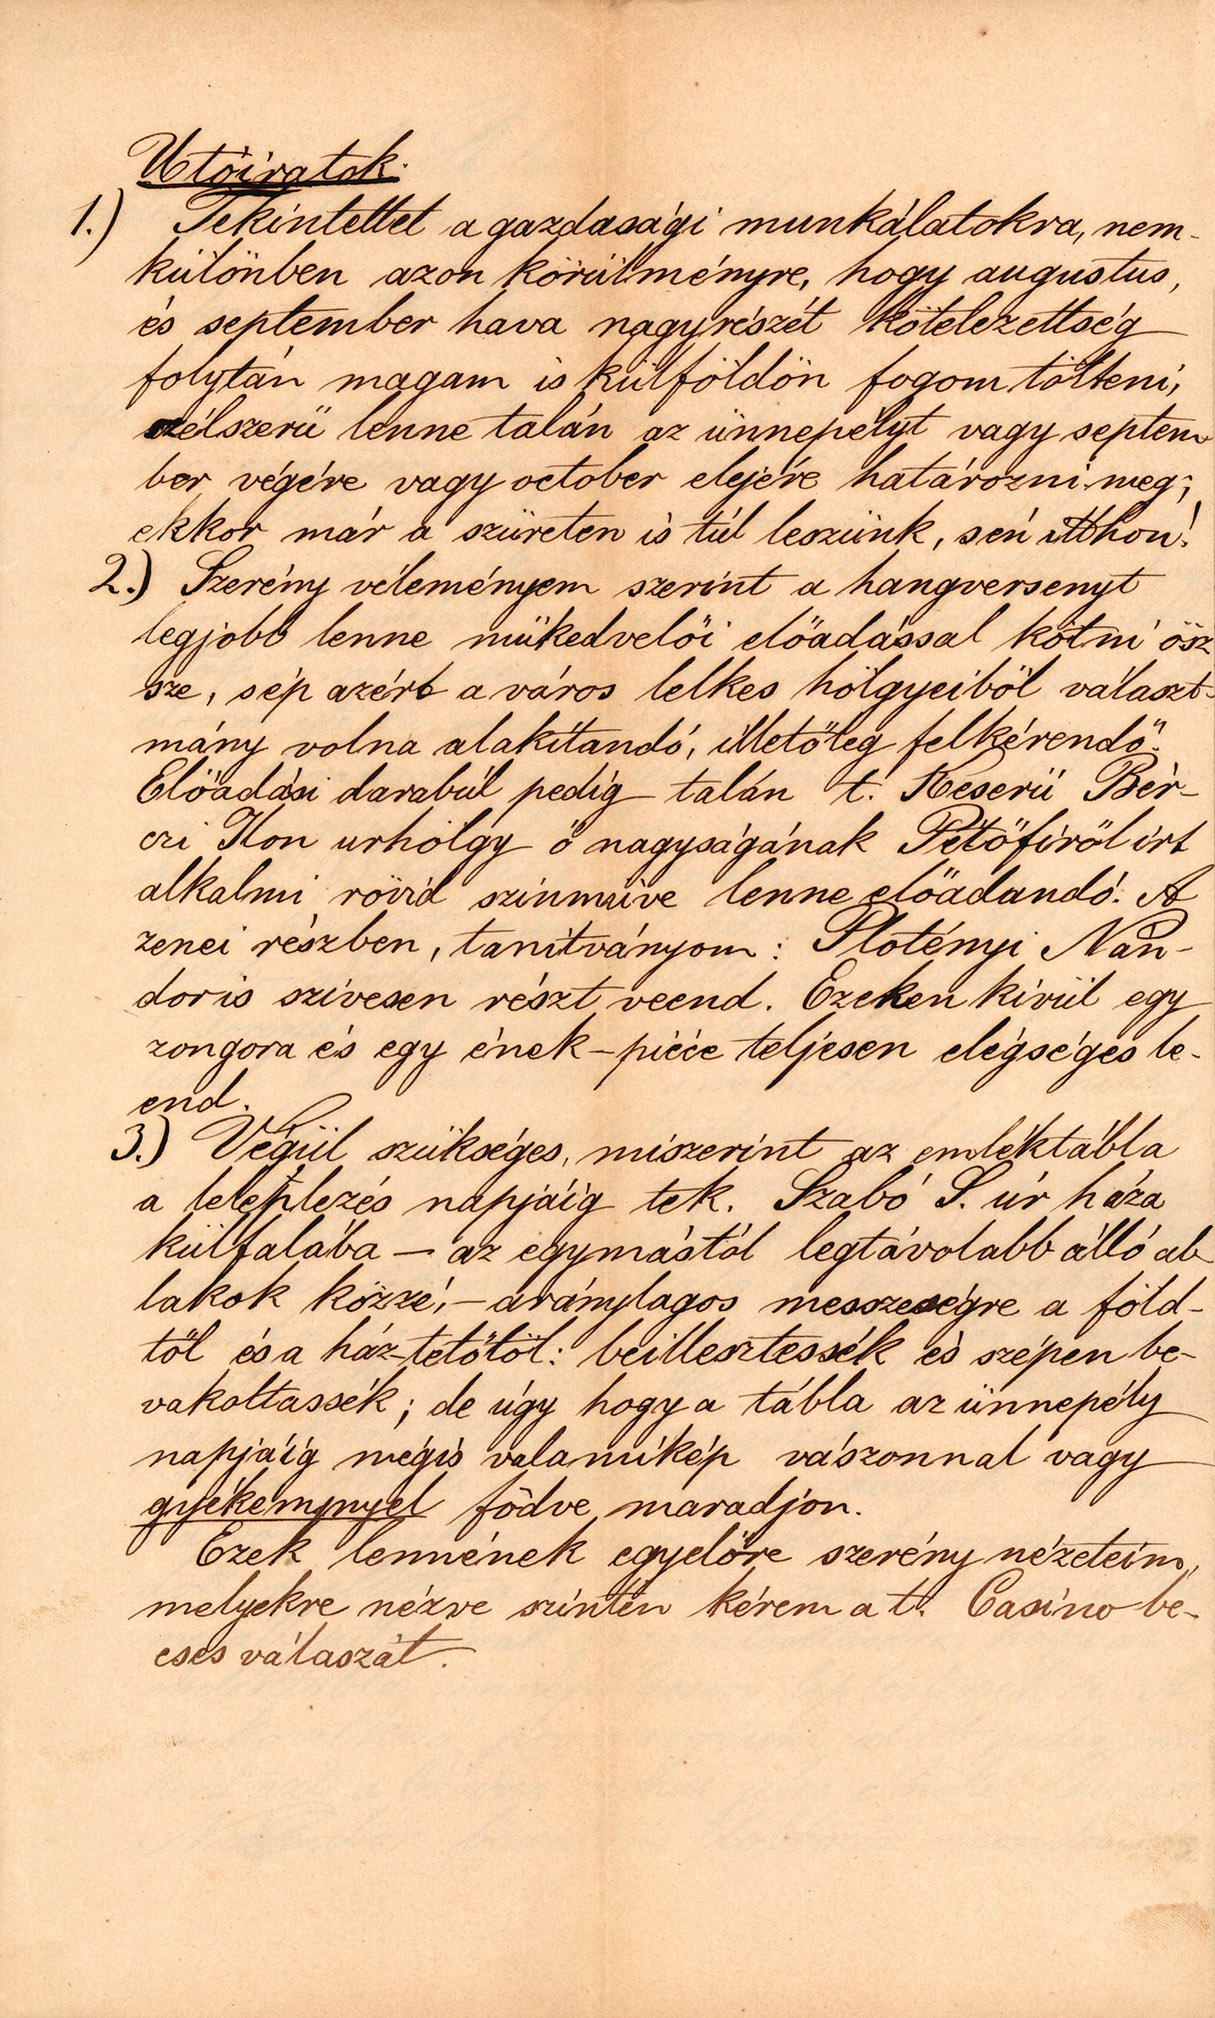 Utóiratok.
1.) Tekintettel a gazdasági munkálatokra, nem-
különben azon körülményre, hogy augustus,
és september hava nagyrészét kötelezettség
folytán magam is külföldön fogom tölteni,
célszerü lenne talán az ünnepélyt vagy septem
ber végére vagy october elejére határozni meg;
ekkor már a szüreten is túl leszünk, s én itthon!
2.) Szerény véleményem szerint a hangversenyt
legjobb lenne műkedvelői előadással kötni ösz
sze, s ép azért a város lelkes hölgyeiből választ-
mány volna alakítandó, illetőleg felkérendő.
Előadási darabúl pedig talán t. Keserü Bér-
czi Ilon urhölgy ő nagyságának Petőfiről irt
alkalmi rövid szinmüve lenne előadandó. A
zenei részben, tanítványom: Plotényi Nán-
dor is szívesen részt veend. Ezeken kivül egy
zongora és egy ének-pièce teljesen elégséges le-
end.
3.) Végül szükséges, miszerint az emléktábla
a leleplezés napjáig tek. Szabó S. úr háza
külfalába – az egymástól legtávolabb álló ab
lakok közzé, – aránylagos messzeségre a föld-
től és a ház-tetőtől: beillesztessék és szépen be-
vakoltassék; de úgy hogy a tábla az ünnepély
napjáig mégis valamikép vászonnal vagy
gyékénynyel födve maradjon.
Ezek lennének egyelőre szerény nézeteim,
melyekre nézve szintén kérem a t. Casino be-
cses válaszát.